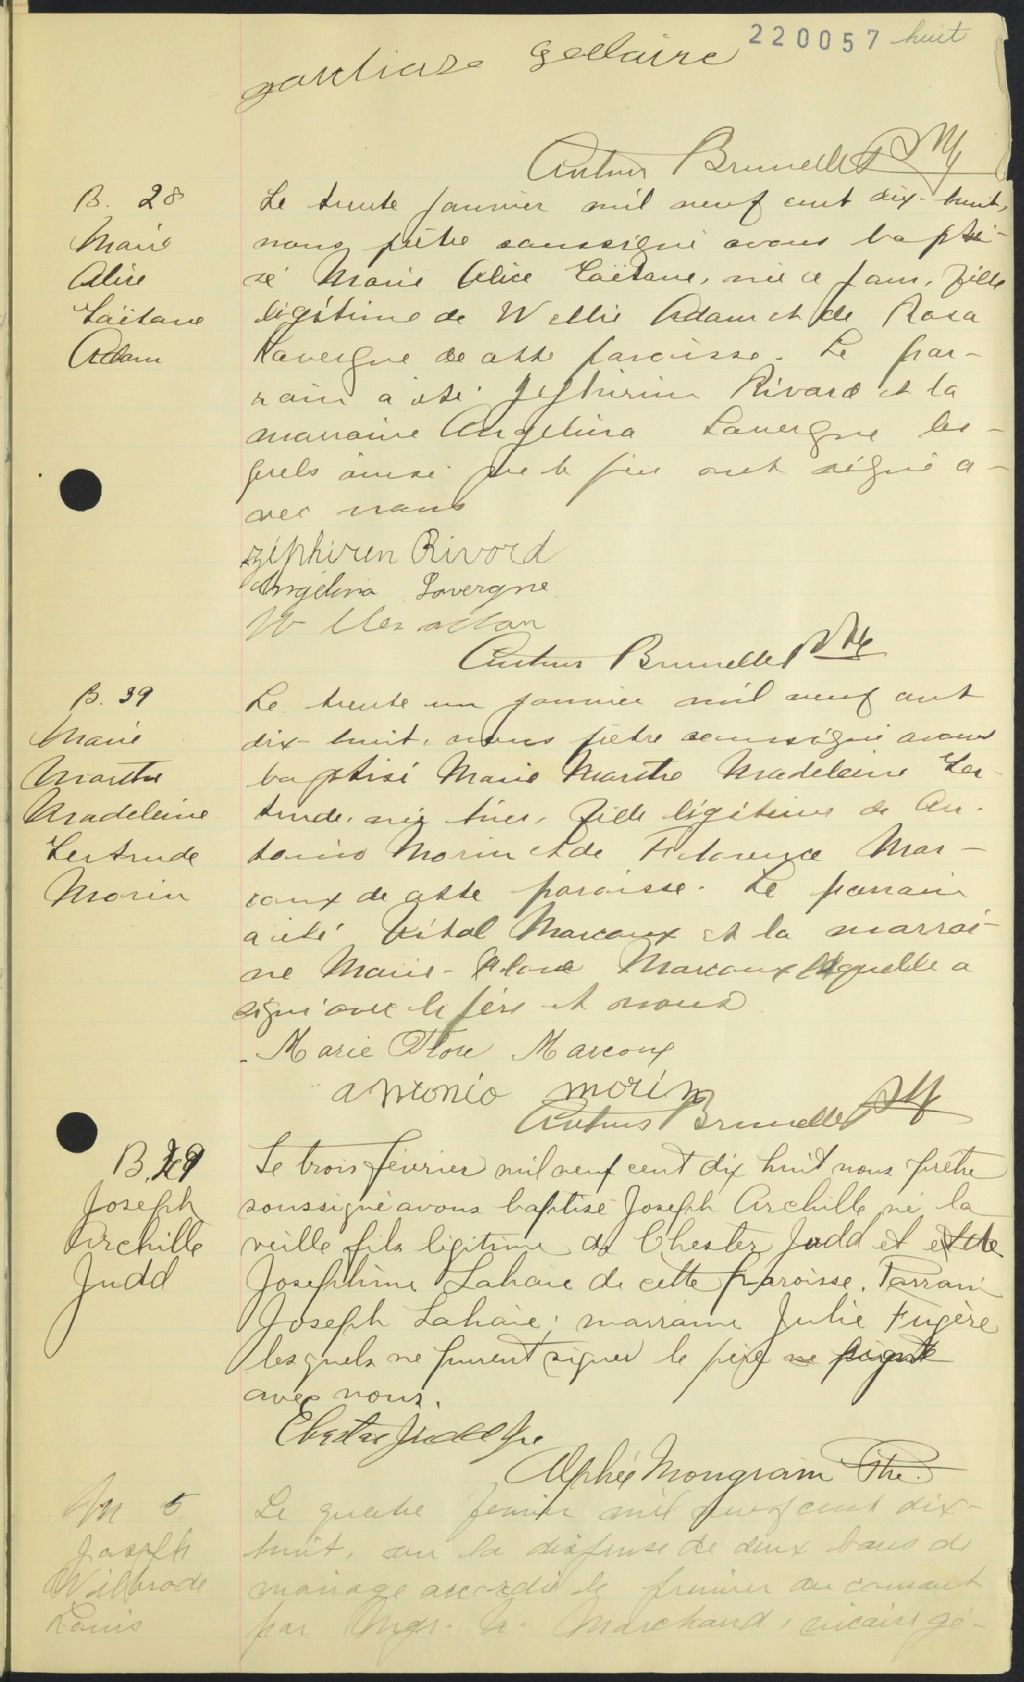 220057 huit
Arthur Brunelle Ptr
B. 28
Marie
Alice
Gaëtane
Adam
Le trente janvier mil neuf cent dix-huit,
nous prêtre soussigné avons bapti-
sé Marie Alice Gaëtane, née ce jour, fille
légitime de Wellie Adam et de Rosa
Lavergne de cette paroisse. Le par-
rain a été Zéphirin Rivard et la
marraine Angelina Lavergne les-
quels ainsi que le père ont signé a-
vec nous
Zéphiren Rivord
Angélina Lavergne
Arthur Brunelle Ptr
B. 39
Marie
Marthe
Madeleine
Gertrude
Morin
Le trente un janvier mil neuf cent
dix-huit, nous prêtre soussigné avons
baptisé Marie Marthe Madeleine Ger-
trude, née hier, fille légitime de An-
tonio Morin et de Florence Mar-
coux de cette paroisse. Le parrain
a été Vital Marcoux et la marrai-
ne Marie-Flore Marcoux laquelle a
signé avec le père et nous
Marie Flore Marcoux
antonio morin
Arthur Brunelle Ptr
B.
Joseph
Archille
Judd
Le trois février mil neuf cent dix huit nous prêtre
soussigné avons baptisé Joseph Archille né la
veille fils légitime de Chester Judd et et de
Josephine Lahaie de cette paroisse. Parrain
Joseph Lahaie; marraine Julie Fugère
lesquels ne purent signer le père
avec nous.
Alphée Mongrain Ptre.
M 5
Joseph
Wilbrode
Louis
Le quatre février mil neuf cent dix-
huit, vu la dispense de deux bans de
mariage accordée le premier du courant
par Mgr. Marchand, vicaire gé-